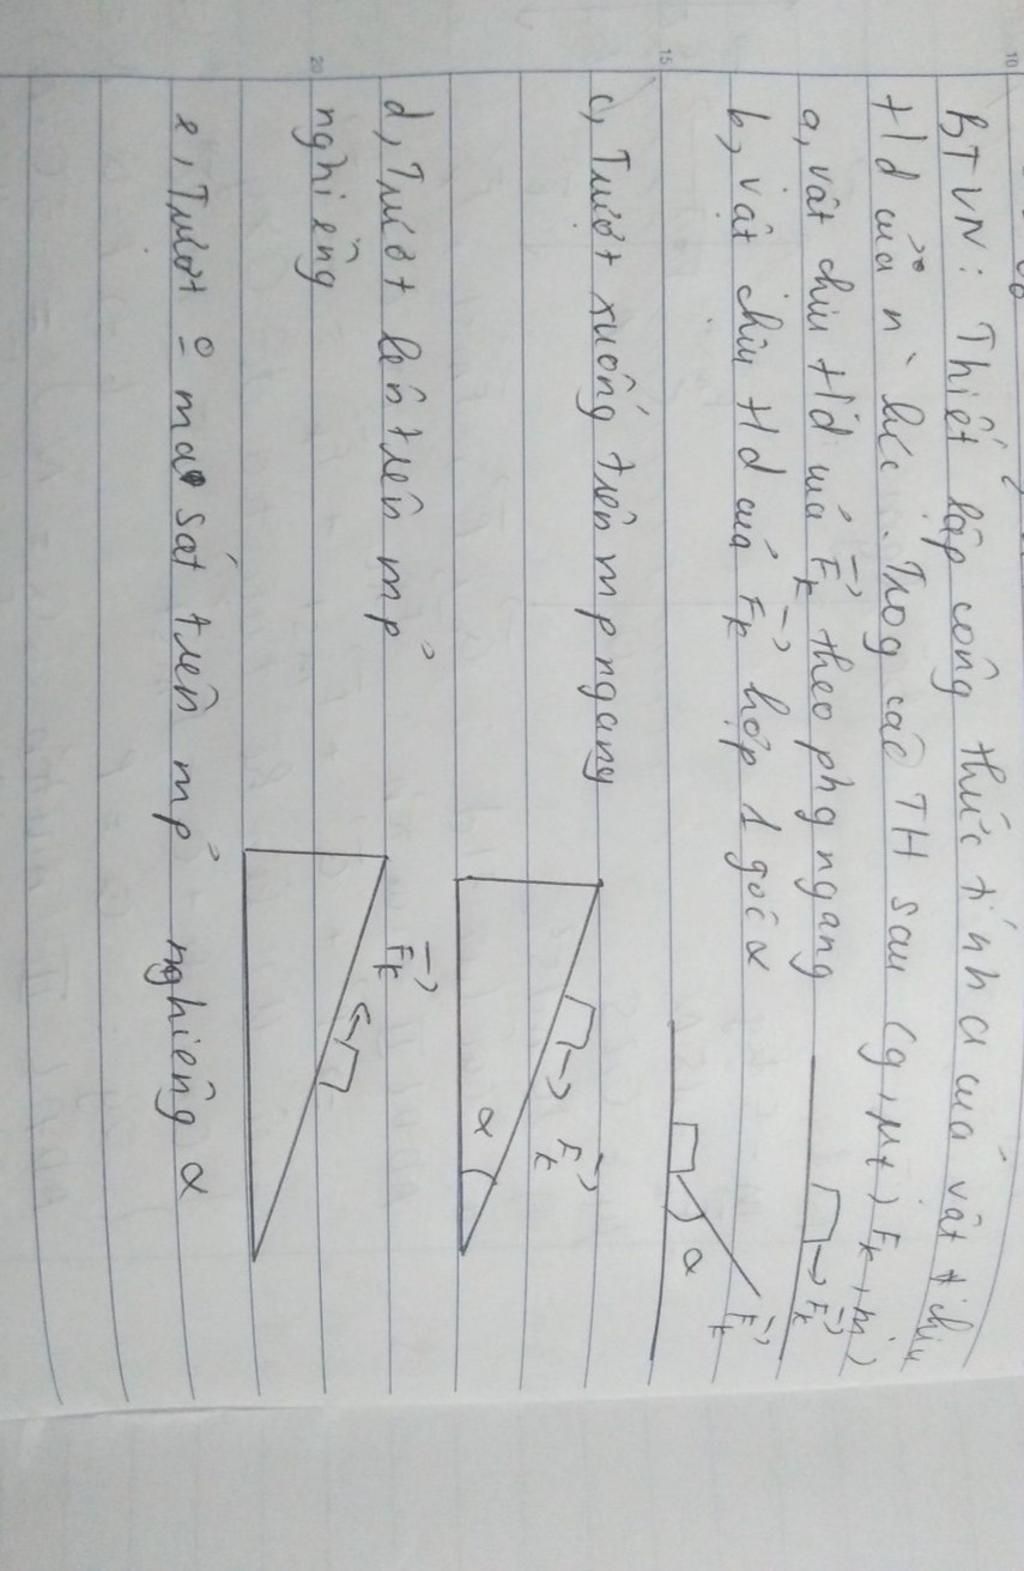 BTVN: Thiết lập công thức tính a của vật chịu
tld của n` lực. Trog các TH sau (g, μt, Fk, m)
a, vật chịu tld của Fk theo phg ngang
Fk
b, vật chịu tld của Fk hợp 1 góc α
α
Fk
c, Trượt xuống trên mp ngang
Fk
α
d, Trượt lên trên mp
nghiêng
Fk
e, Trượt o ma sát trên mp nghiêng α
10
15
20